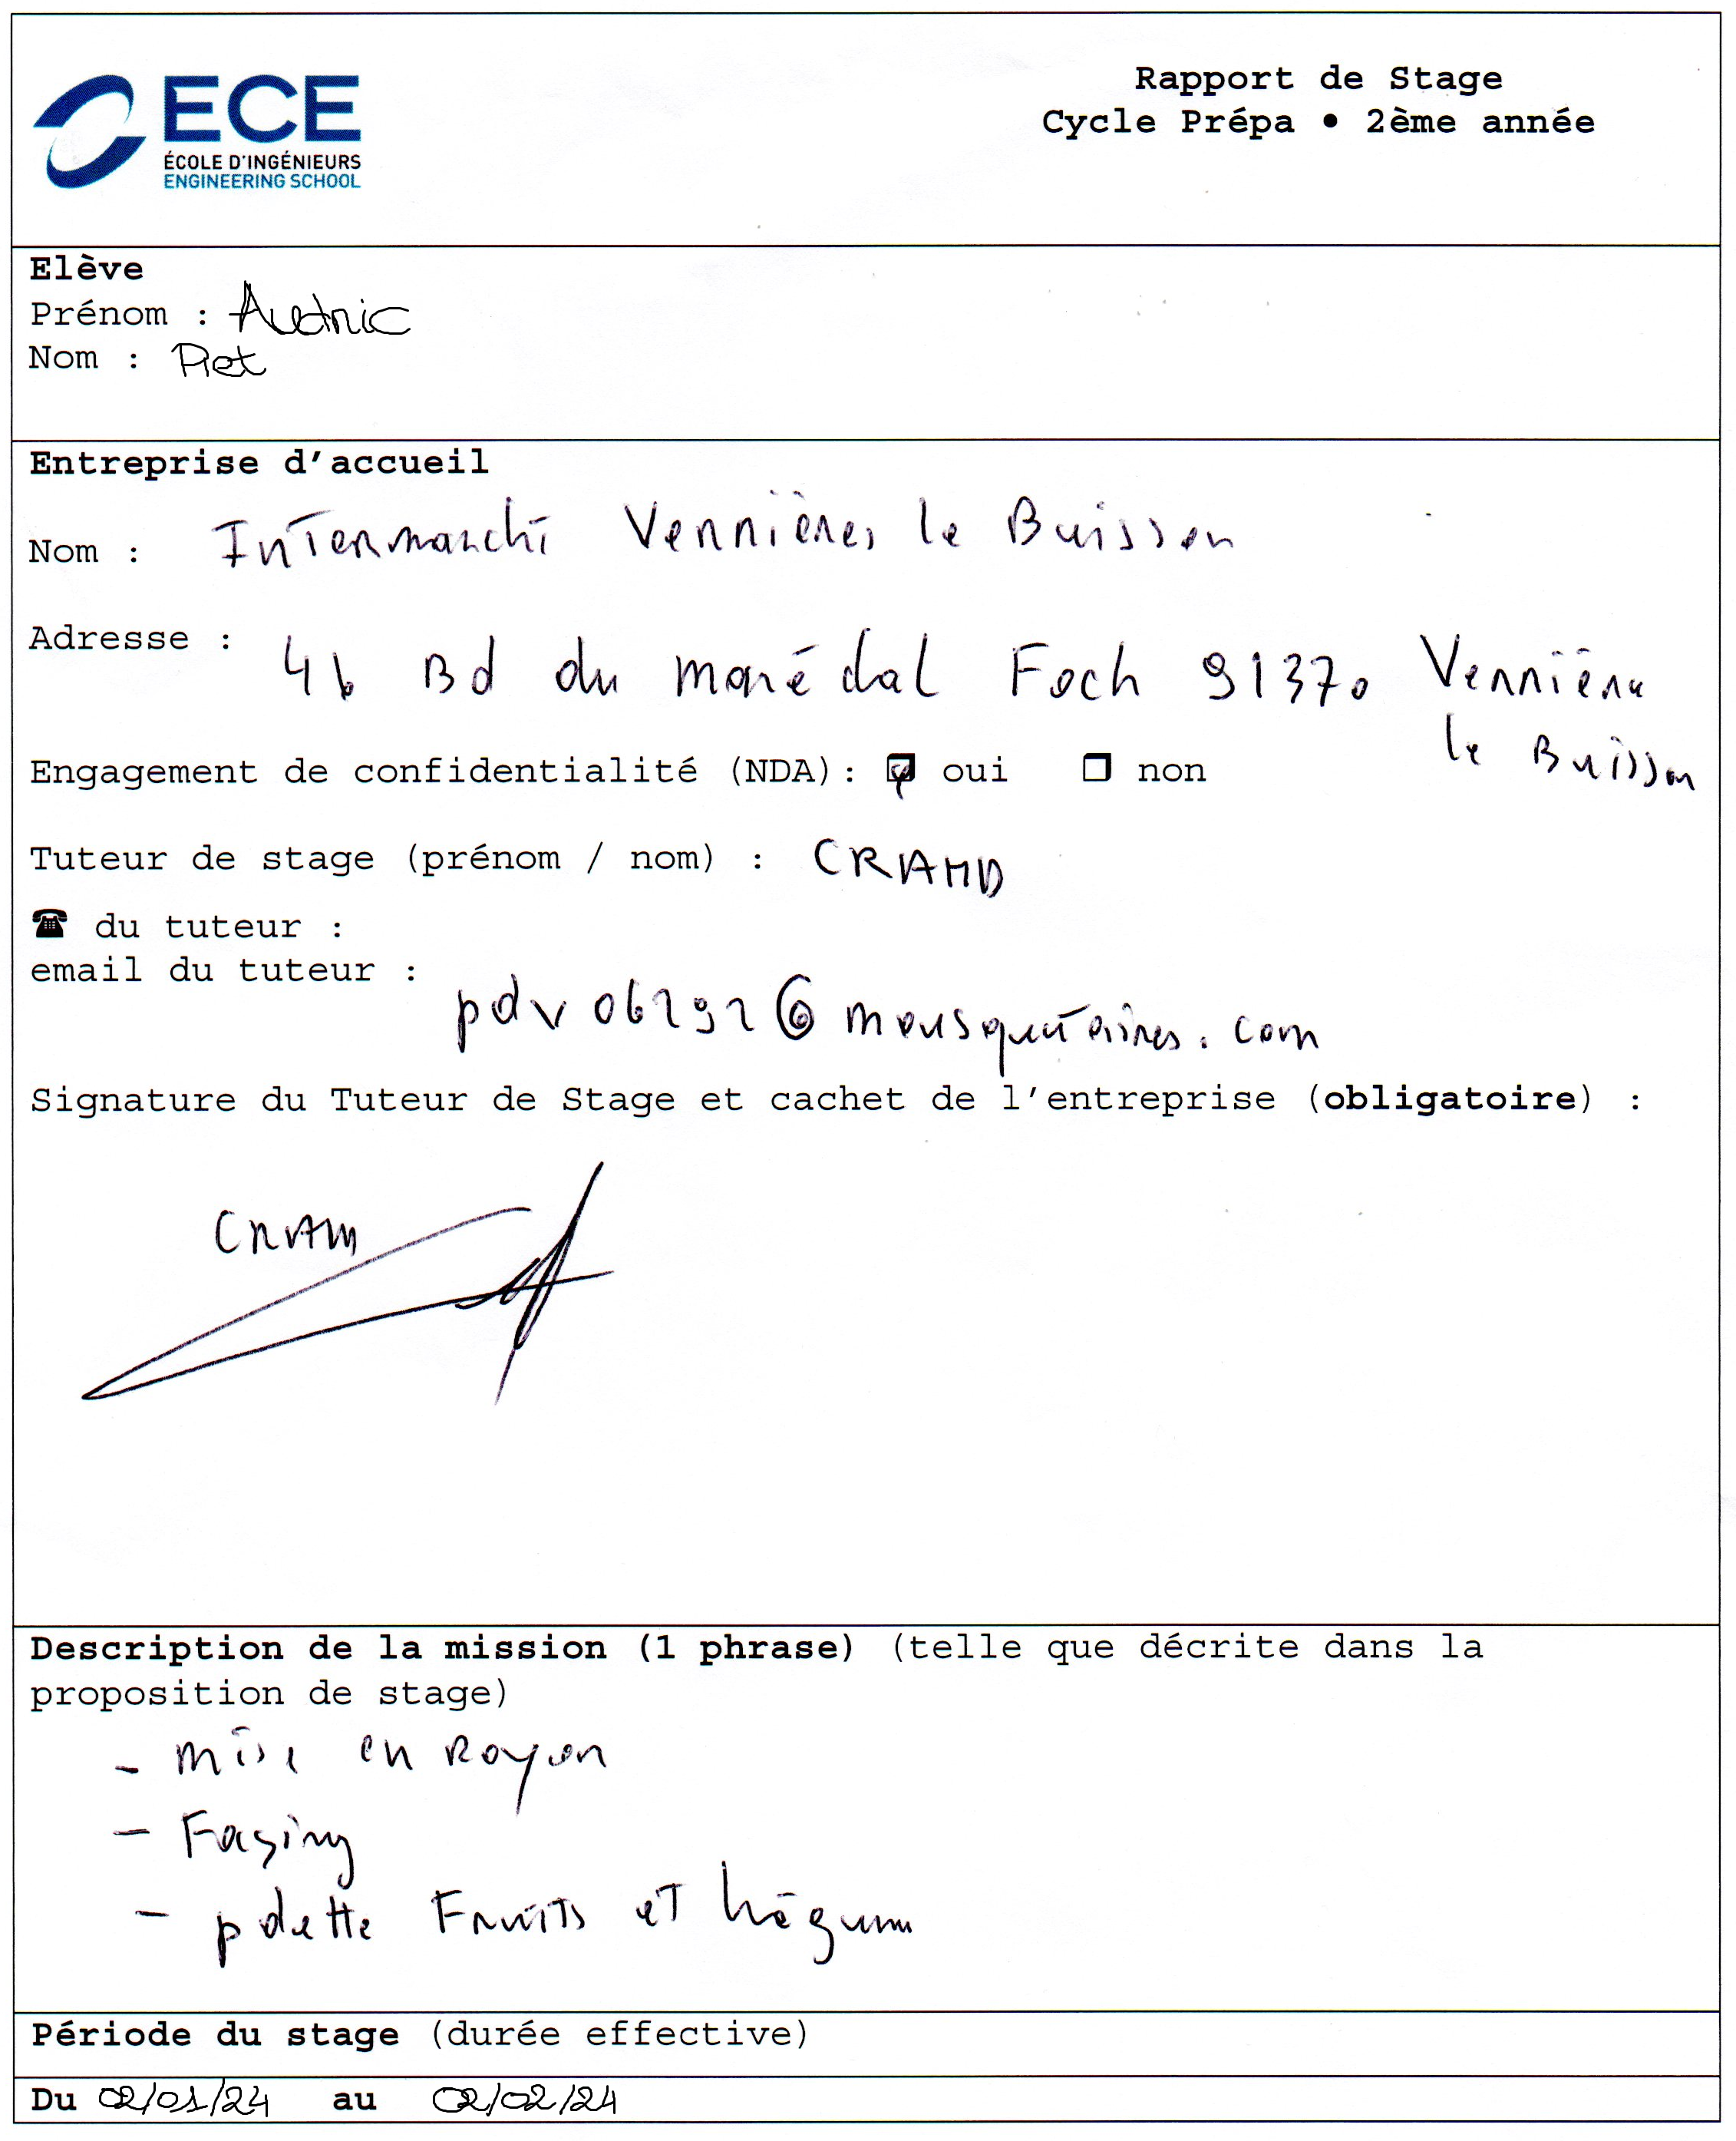 ECE
ÉCOLE D'INGÉNIEURS
ENGINEERING SCHOOL
Rapport de Stage
Cycle Prépa • 2ème année
Elève
Prénom : Audric
Nom : Piet
Entreprise d'accueil
Nom : Intermarché Verrières le Buisson
Adresse : 4b Bd du maréchal Foch 91370 Verrières
le Buisson
Engagement de confidentialité (NDA): oui non
Tuteur de stage (prénom / nom) :
☎ du tuteur :
email du tuteur :
pdv06292@mousquetaires.com
Signature du Tuteur de Stage et cachet de l'entreprise (obligatoire) :
Description de la mission (1 phrase) (telle que décrite dans la
proposition de stage)
- mise en Rayon
- Facing
- palette Fruits et Légumes
Période du stage (durée effective)
Du 02/01/24 au 02/02/24